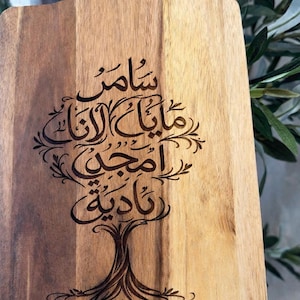 سامر
مايا لانا
امجد
نادية